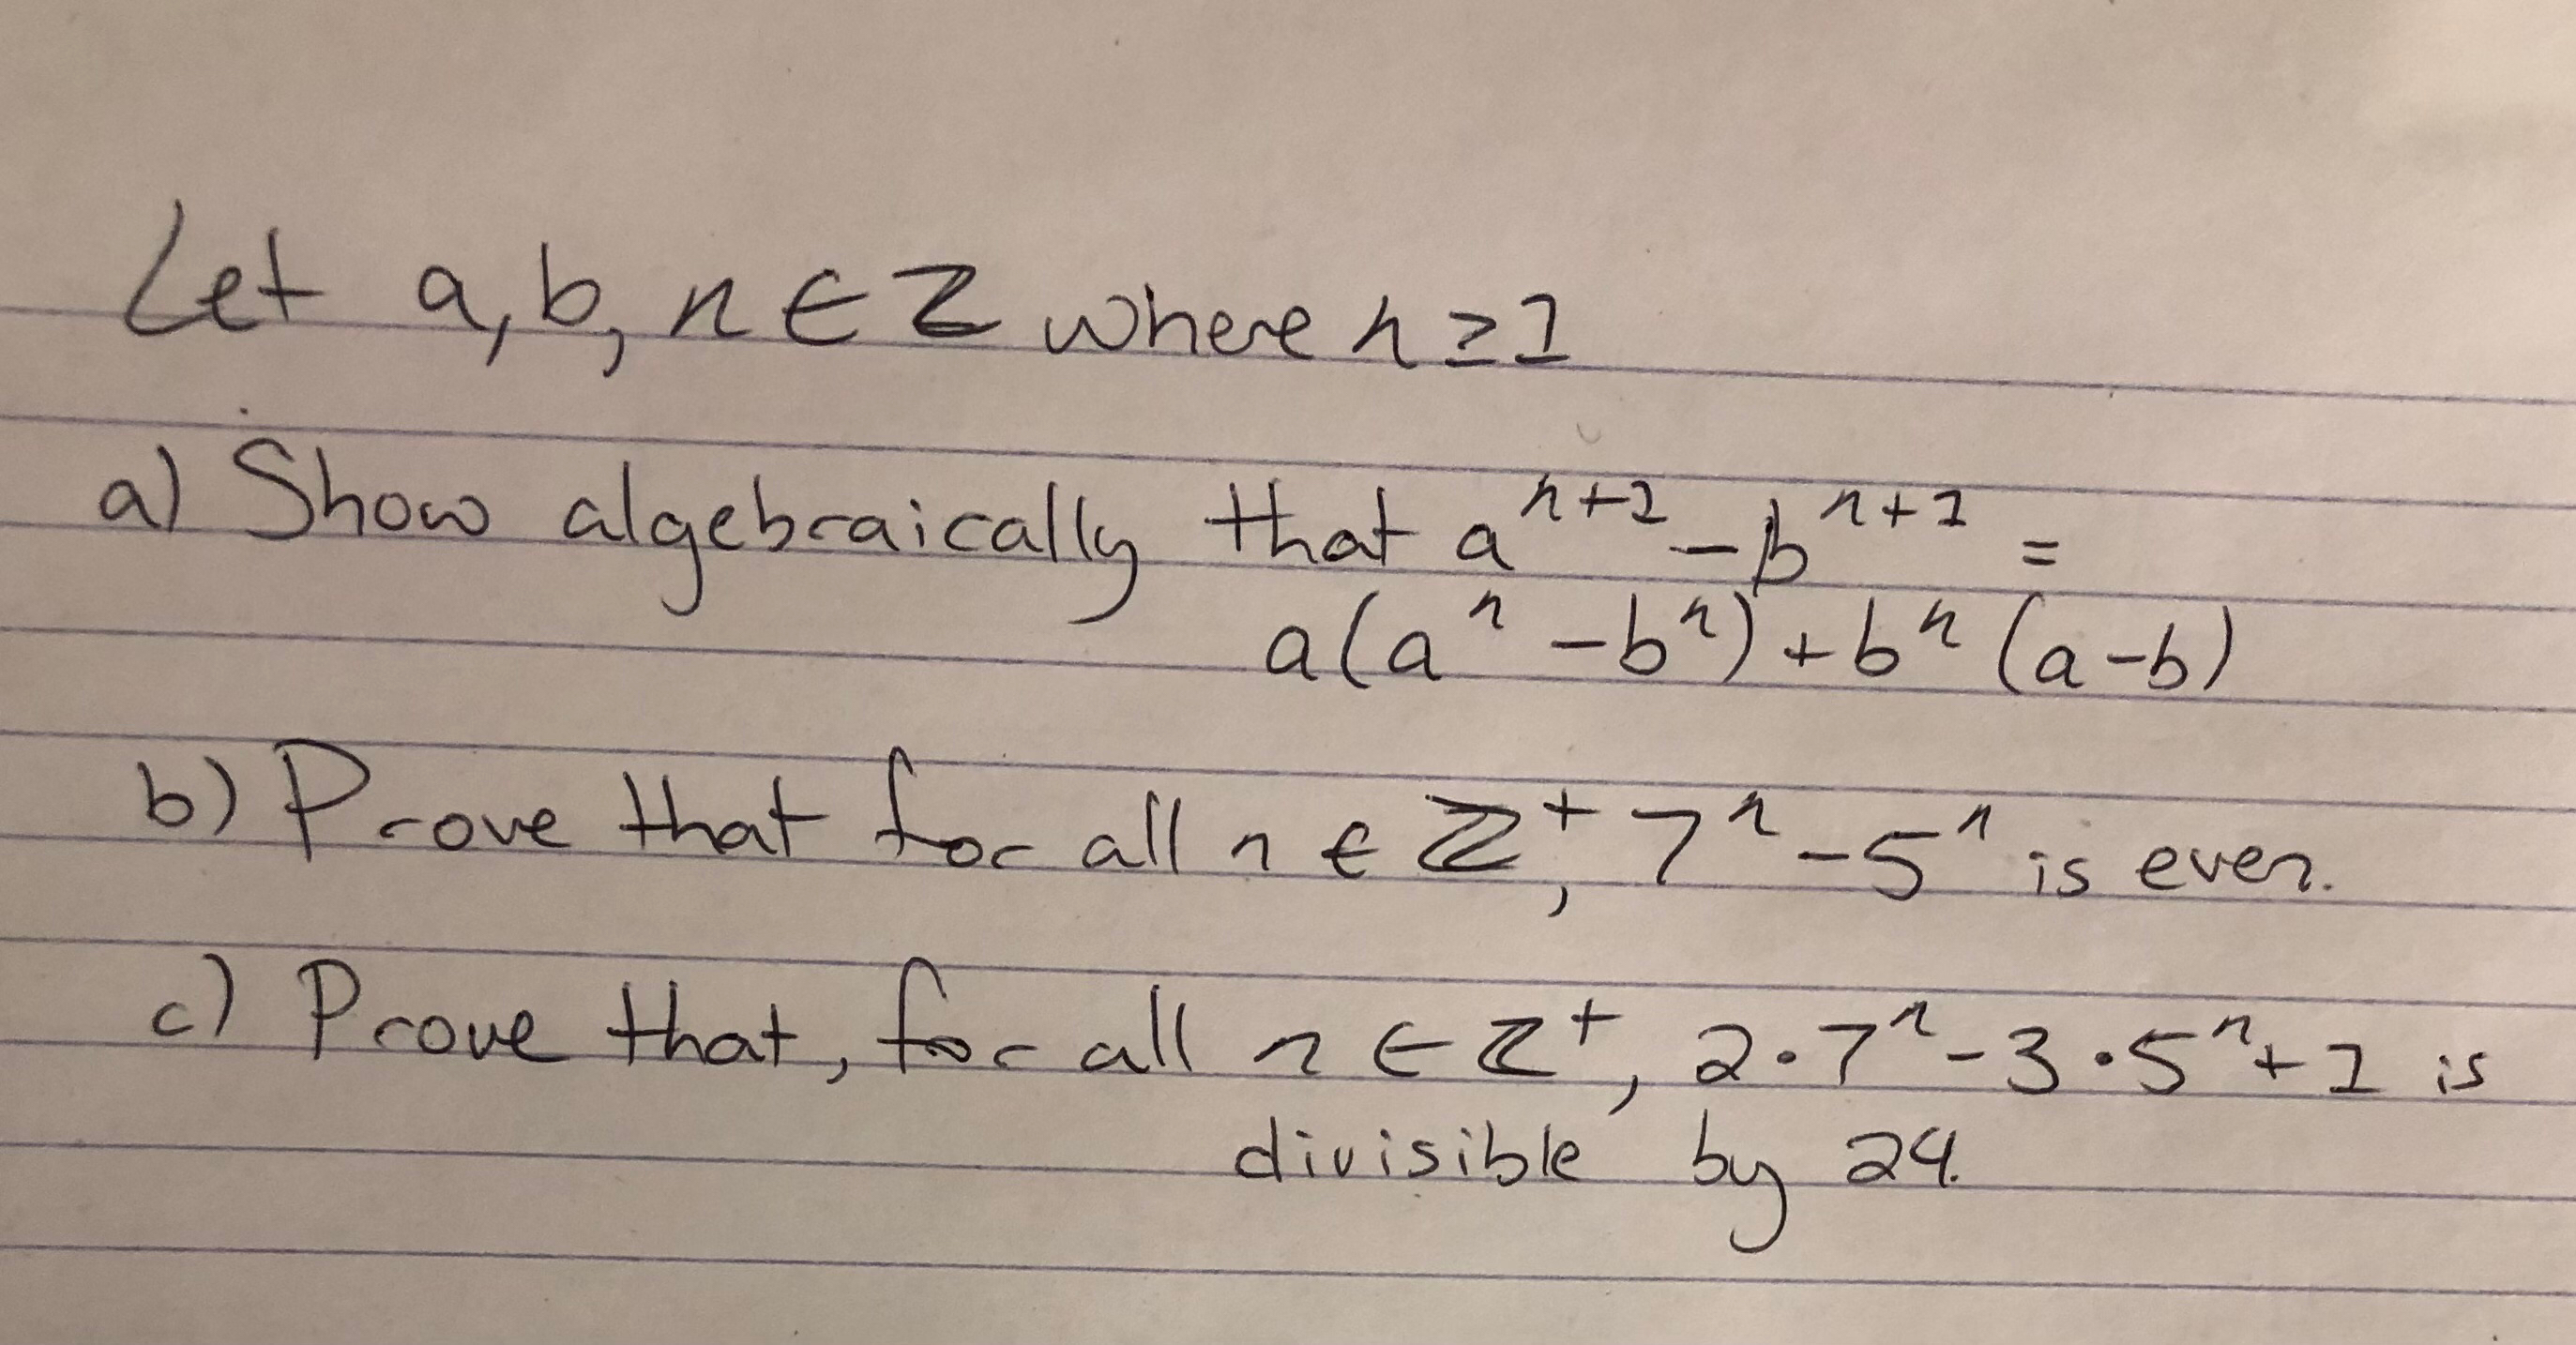 Let a, b, n ∈ ℤ where n ≥ 1
a) Show algebraically that aⁿ⁺¹ - bⁿ⁺¹ =
a(aⁿ - bⁿ) + bⁿ (a - b)
b) Prove that for all n ∈ ℤ⁺, 7ⁿ - 5ⁿ is even.
c) Prove that, for all n ∈ ℤ⁺, 2·7ⁿ - 3·5ⁿ + 1 is
divisible by 24.